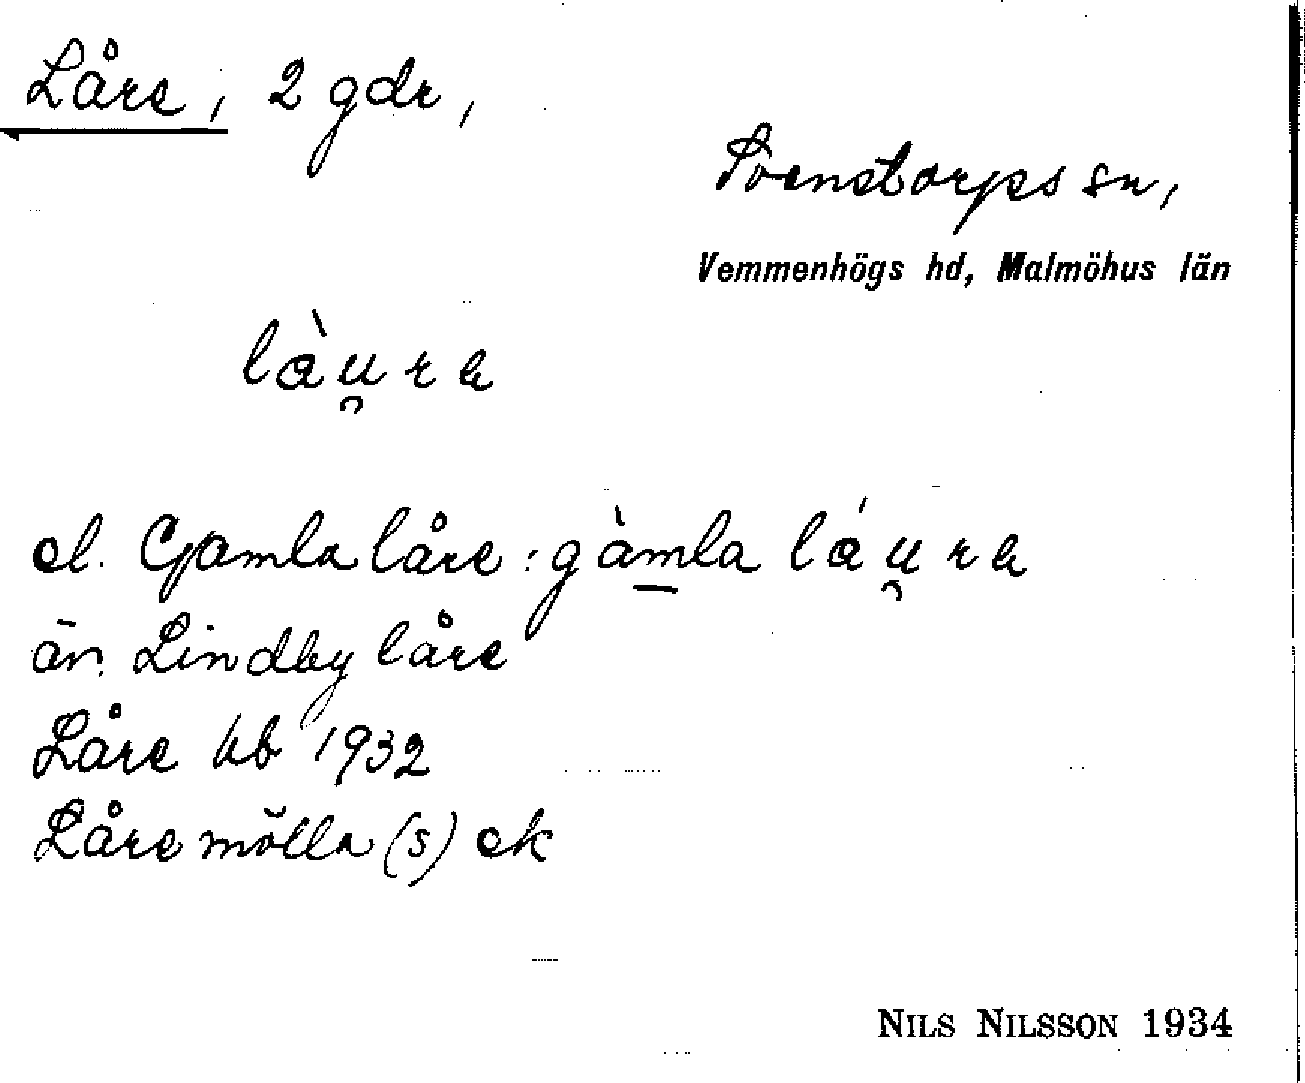 Låre, 2 gdr,
Svenstorps sn,
Vemmenhögs hd, Malmöhus län
làu̯ra
el. Gamla låre : gàmla láu̯ra
än. Lindby låre
Låre kb 1932
Låre mölla (s) ek
NILS NILSSON 1934